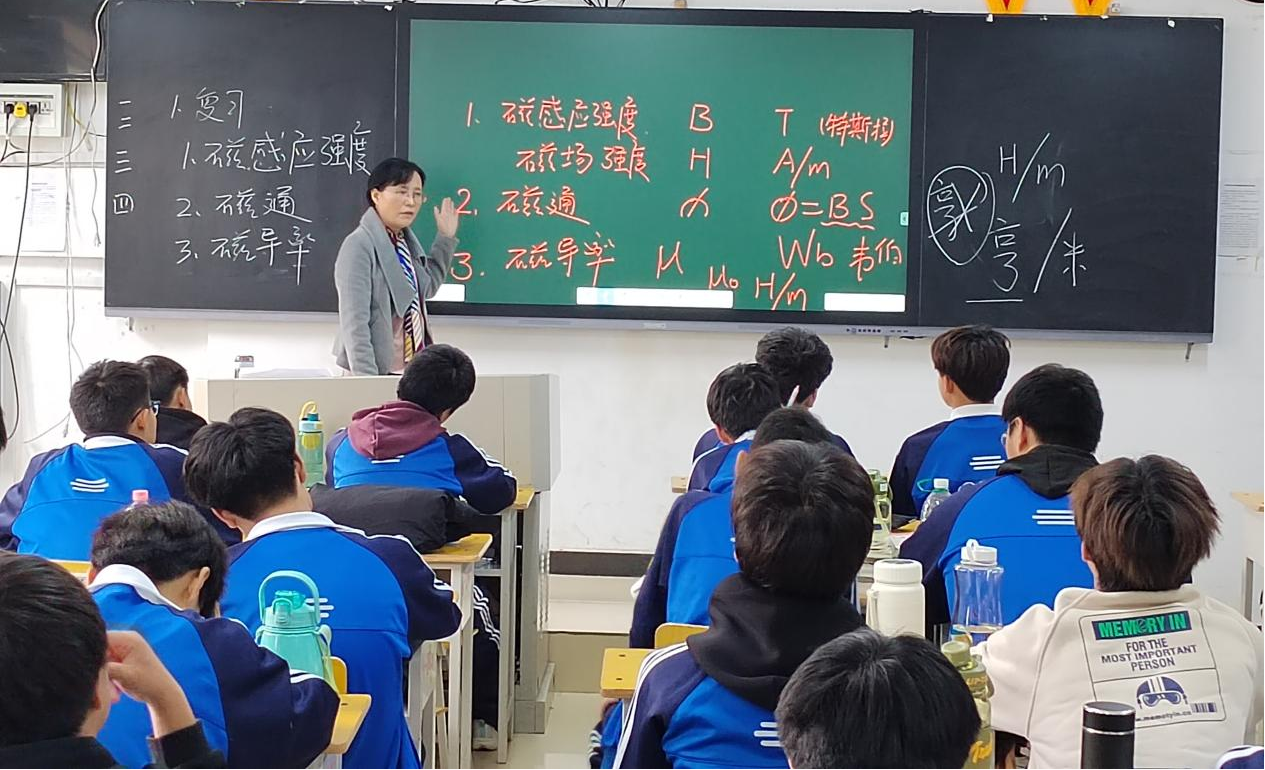 二 1. 复习
三 1. 磁感应强度
四 2. 磁通
3. 磁导率
1. 磁感应强度 B T (特斯拉)
磁场强度 H A/m
2. 磁通 Φ Φ=BS
Wb 韦伯
3. 磁导率 μ μ₀ H/m
H/m
亨/米
MEMORY IN
FOR THE
MOST IMPORTANT
PERSON